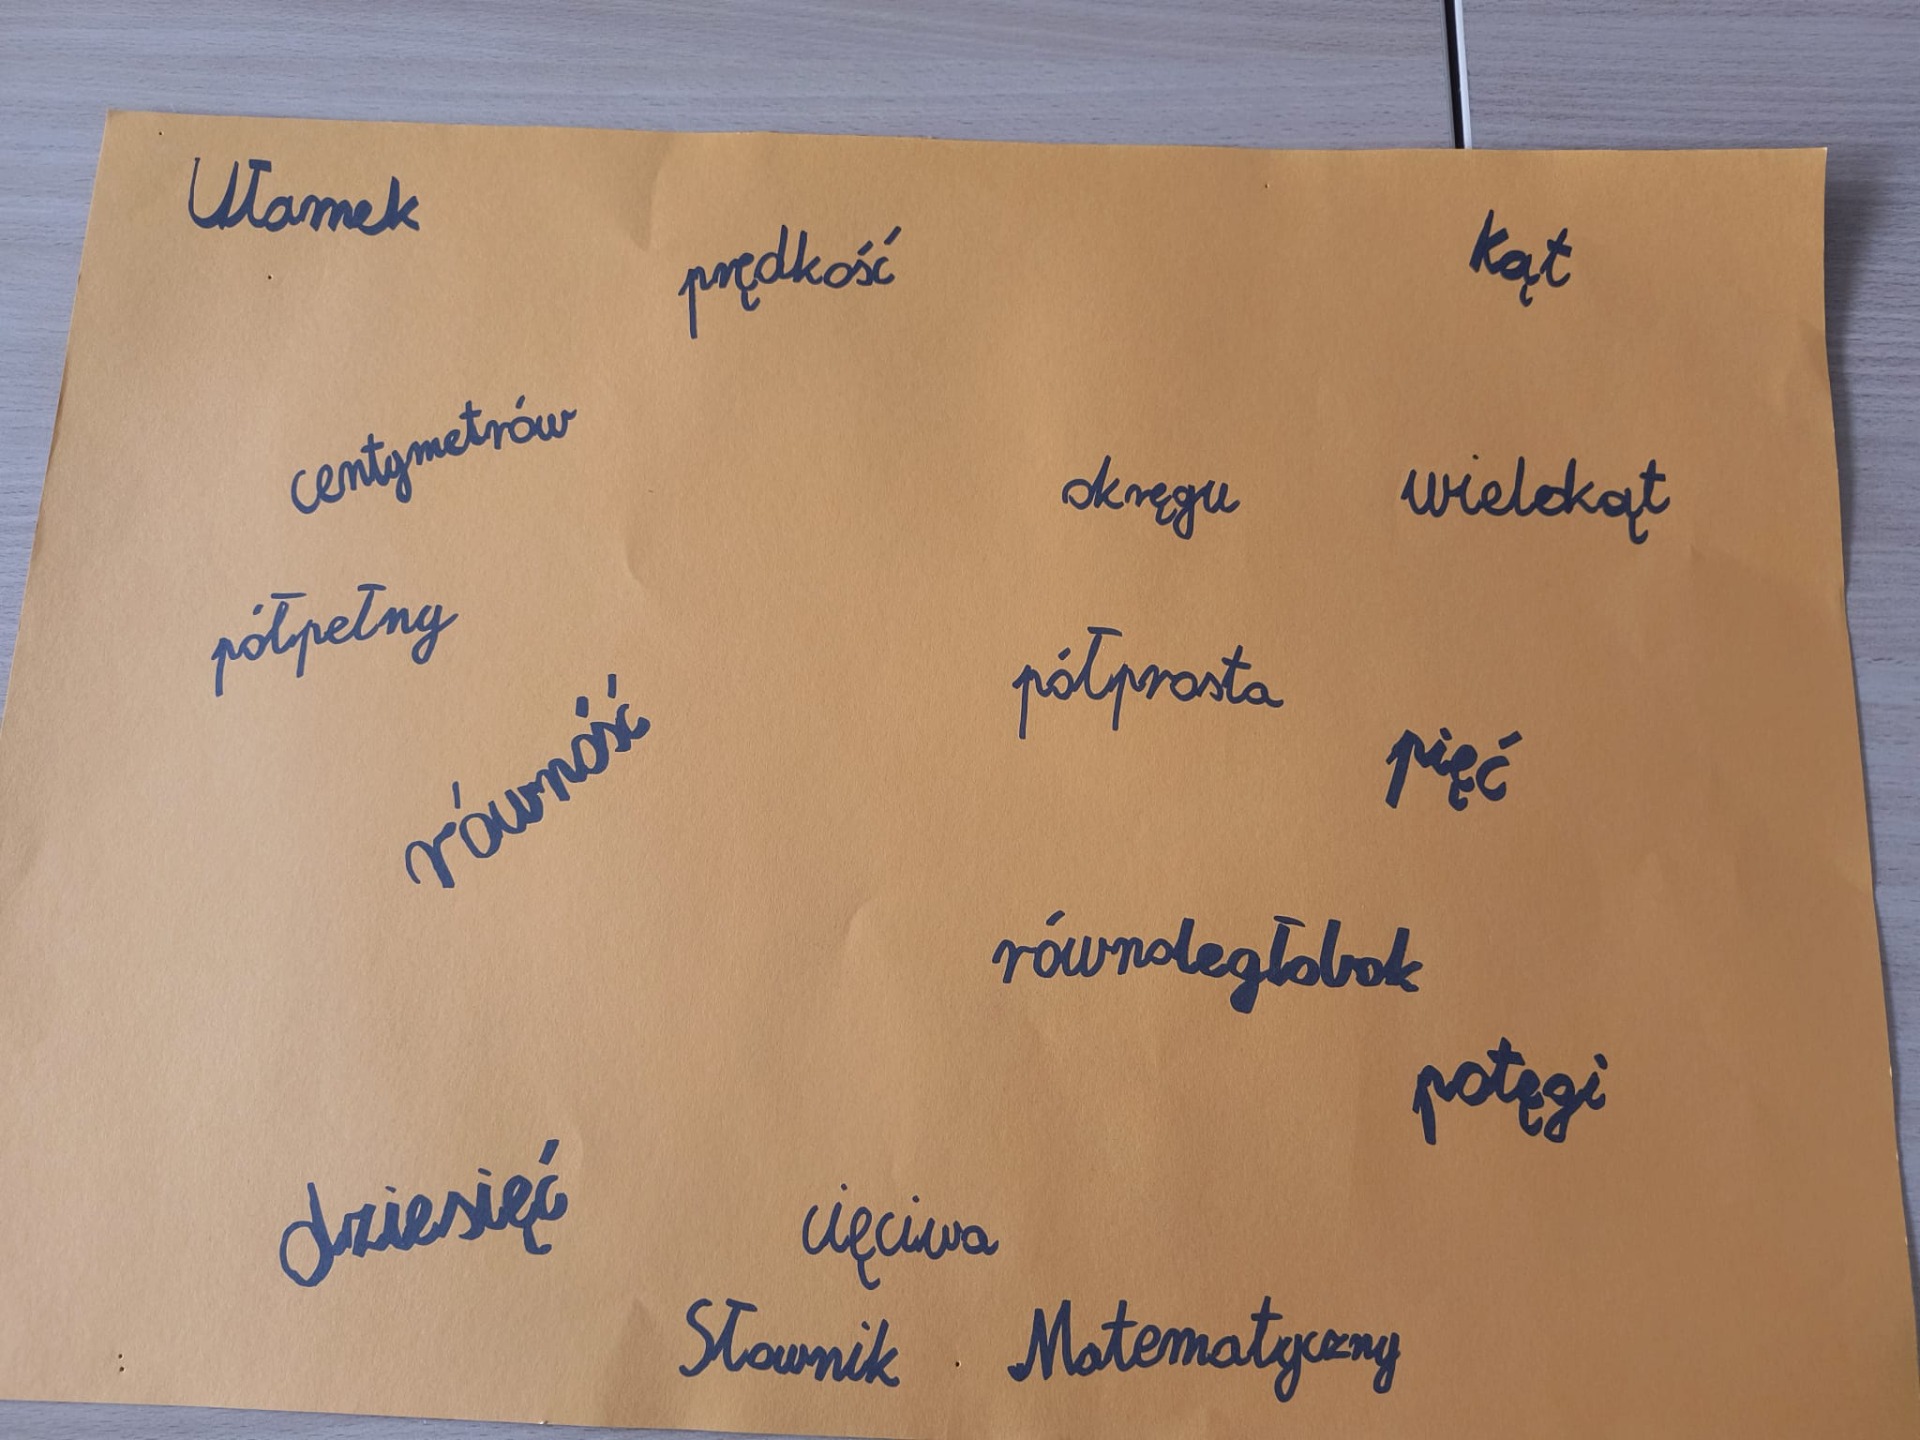 Ułamek
prędkość
kąt
centymetrów
okręgu
wielokąt
półpełny
półprosta
równość
pięć
równoległobok
potęgi
dziesięć
cięciwa
Słownik Matematyczny